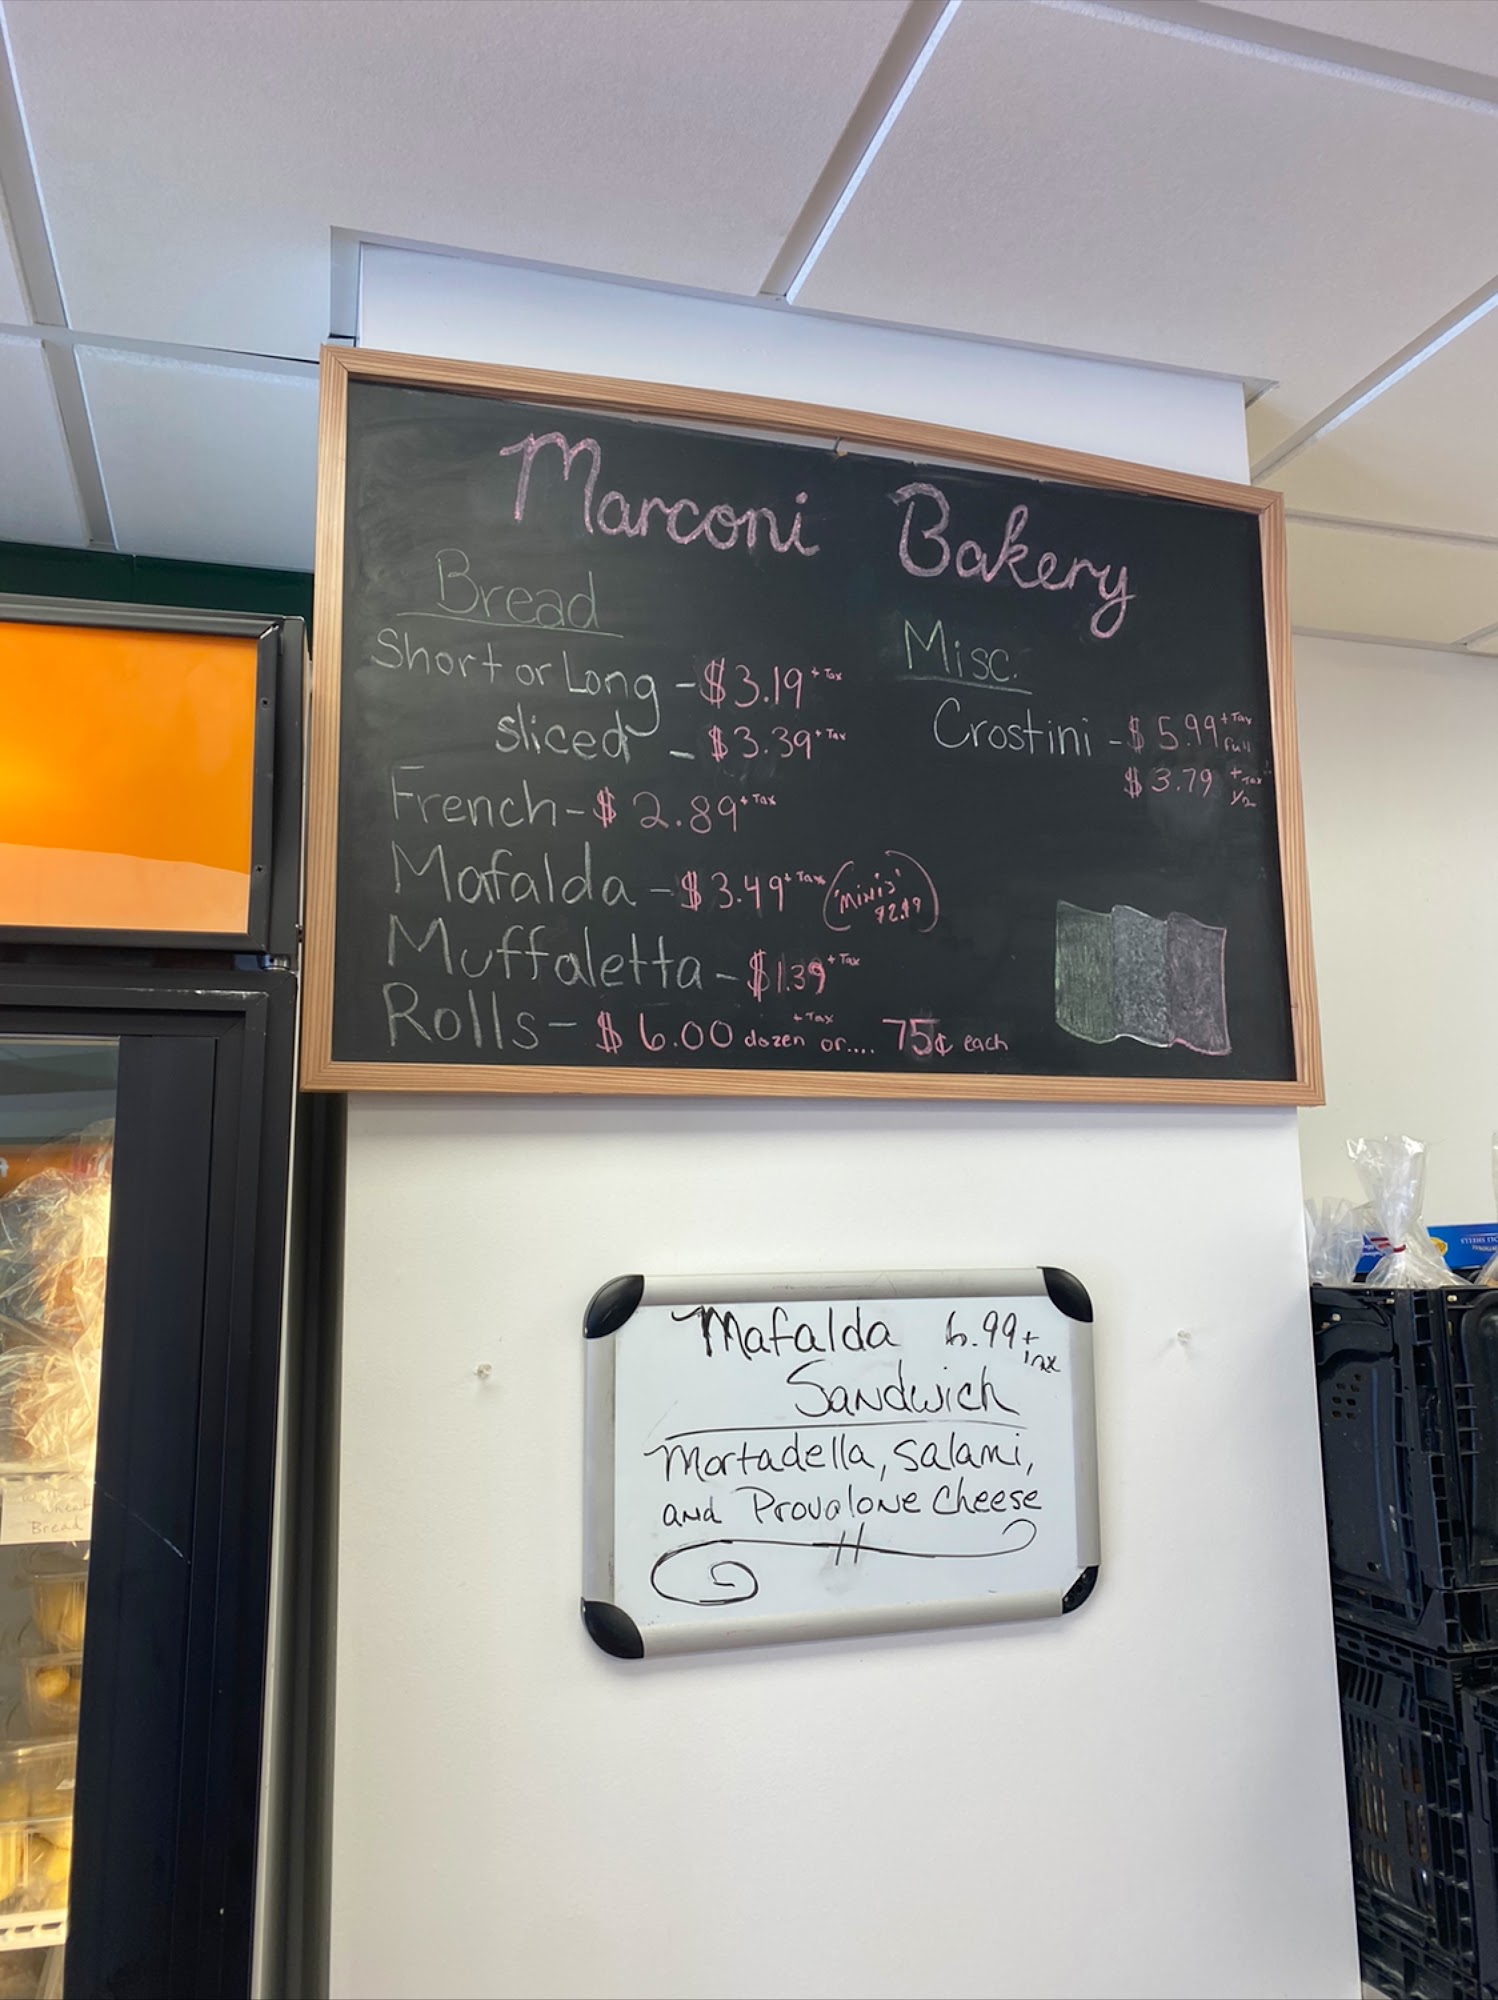 Marconi Bakery
Bread
Short or Long - $3.19 + Tax
sliced - $3.39 + Tax
French - $2.89 + Tax
Mafalda - $3.49 + Tax ("Minis" $2.49)
Muffaletta - $1.39 + Tax
Rolls - $6.00 + Tax dozen or.... 75¢ each
Misc.
Crostini - $5.99 + Tax Full
$3.79 + Tax 1/2
Mafalda 6.99 + Tax
Sandwich
Mortadella, Salami,
and Provolone Cheese
wheat
Bread